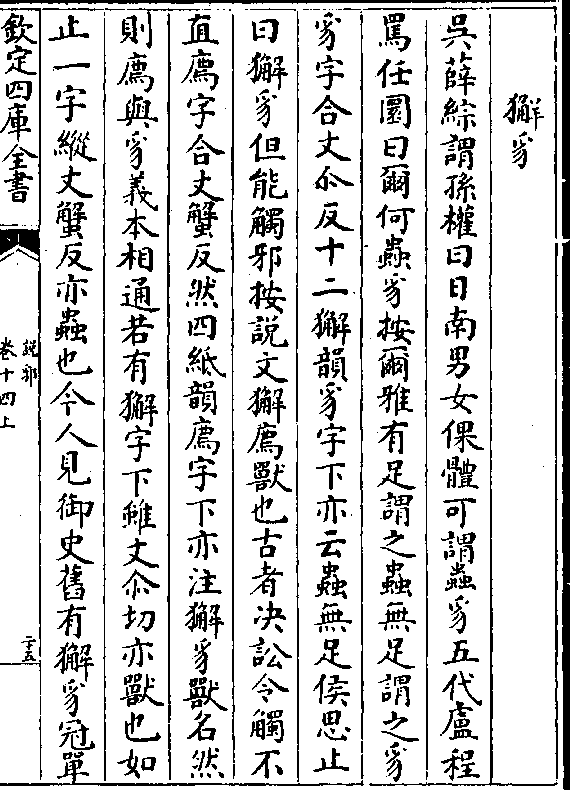 獬豸
吳薛綜謂孫權曰日南男女倮體可謂蟲豸五代盧程
罵任圜曰爾何蟲豸按爾雅有足謂之蟲無足謂之豸
豸字合丈尒反十二獬韻豸字下亦云蟲無足侯思止
曰獬豸但能觸邪按說文獬廌獸也古者決訟令觸不
直廌字合丈蟹反然四紙韻廌字下亦注獬豸獸名然
則廌與豸義本相通若有獬字下雖丈尒切亦獸也如
止一字縱丈蟹反亦蟲也今人見御史舊有獬豸冠單
欽定四庫全書
說郛
卷十四上
二十五